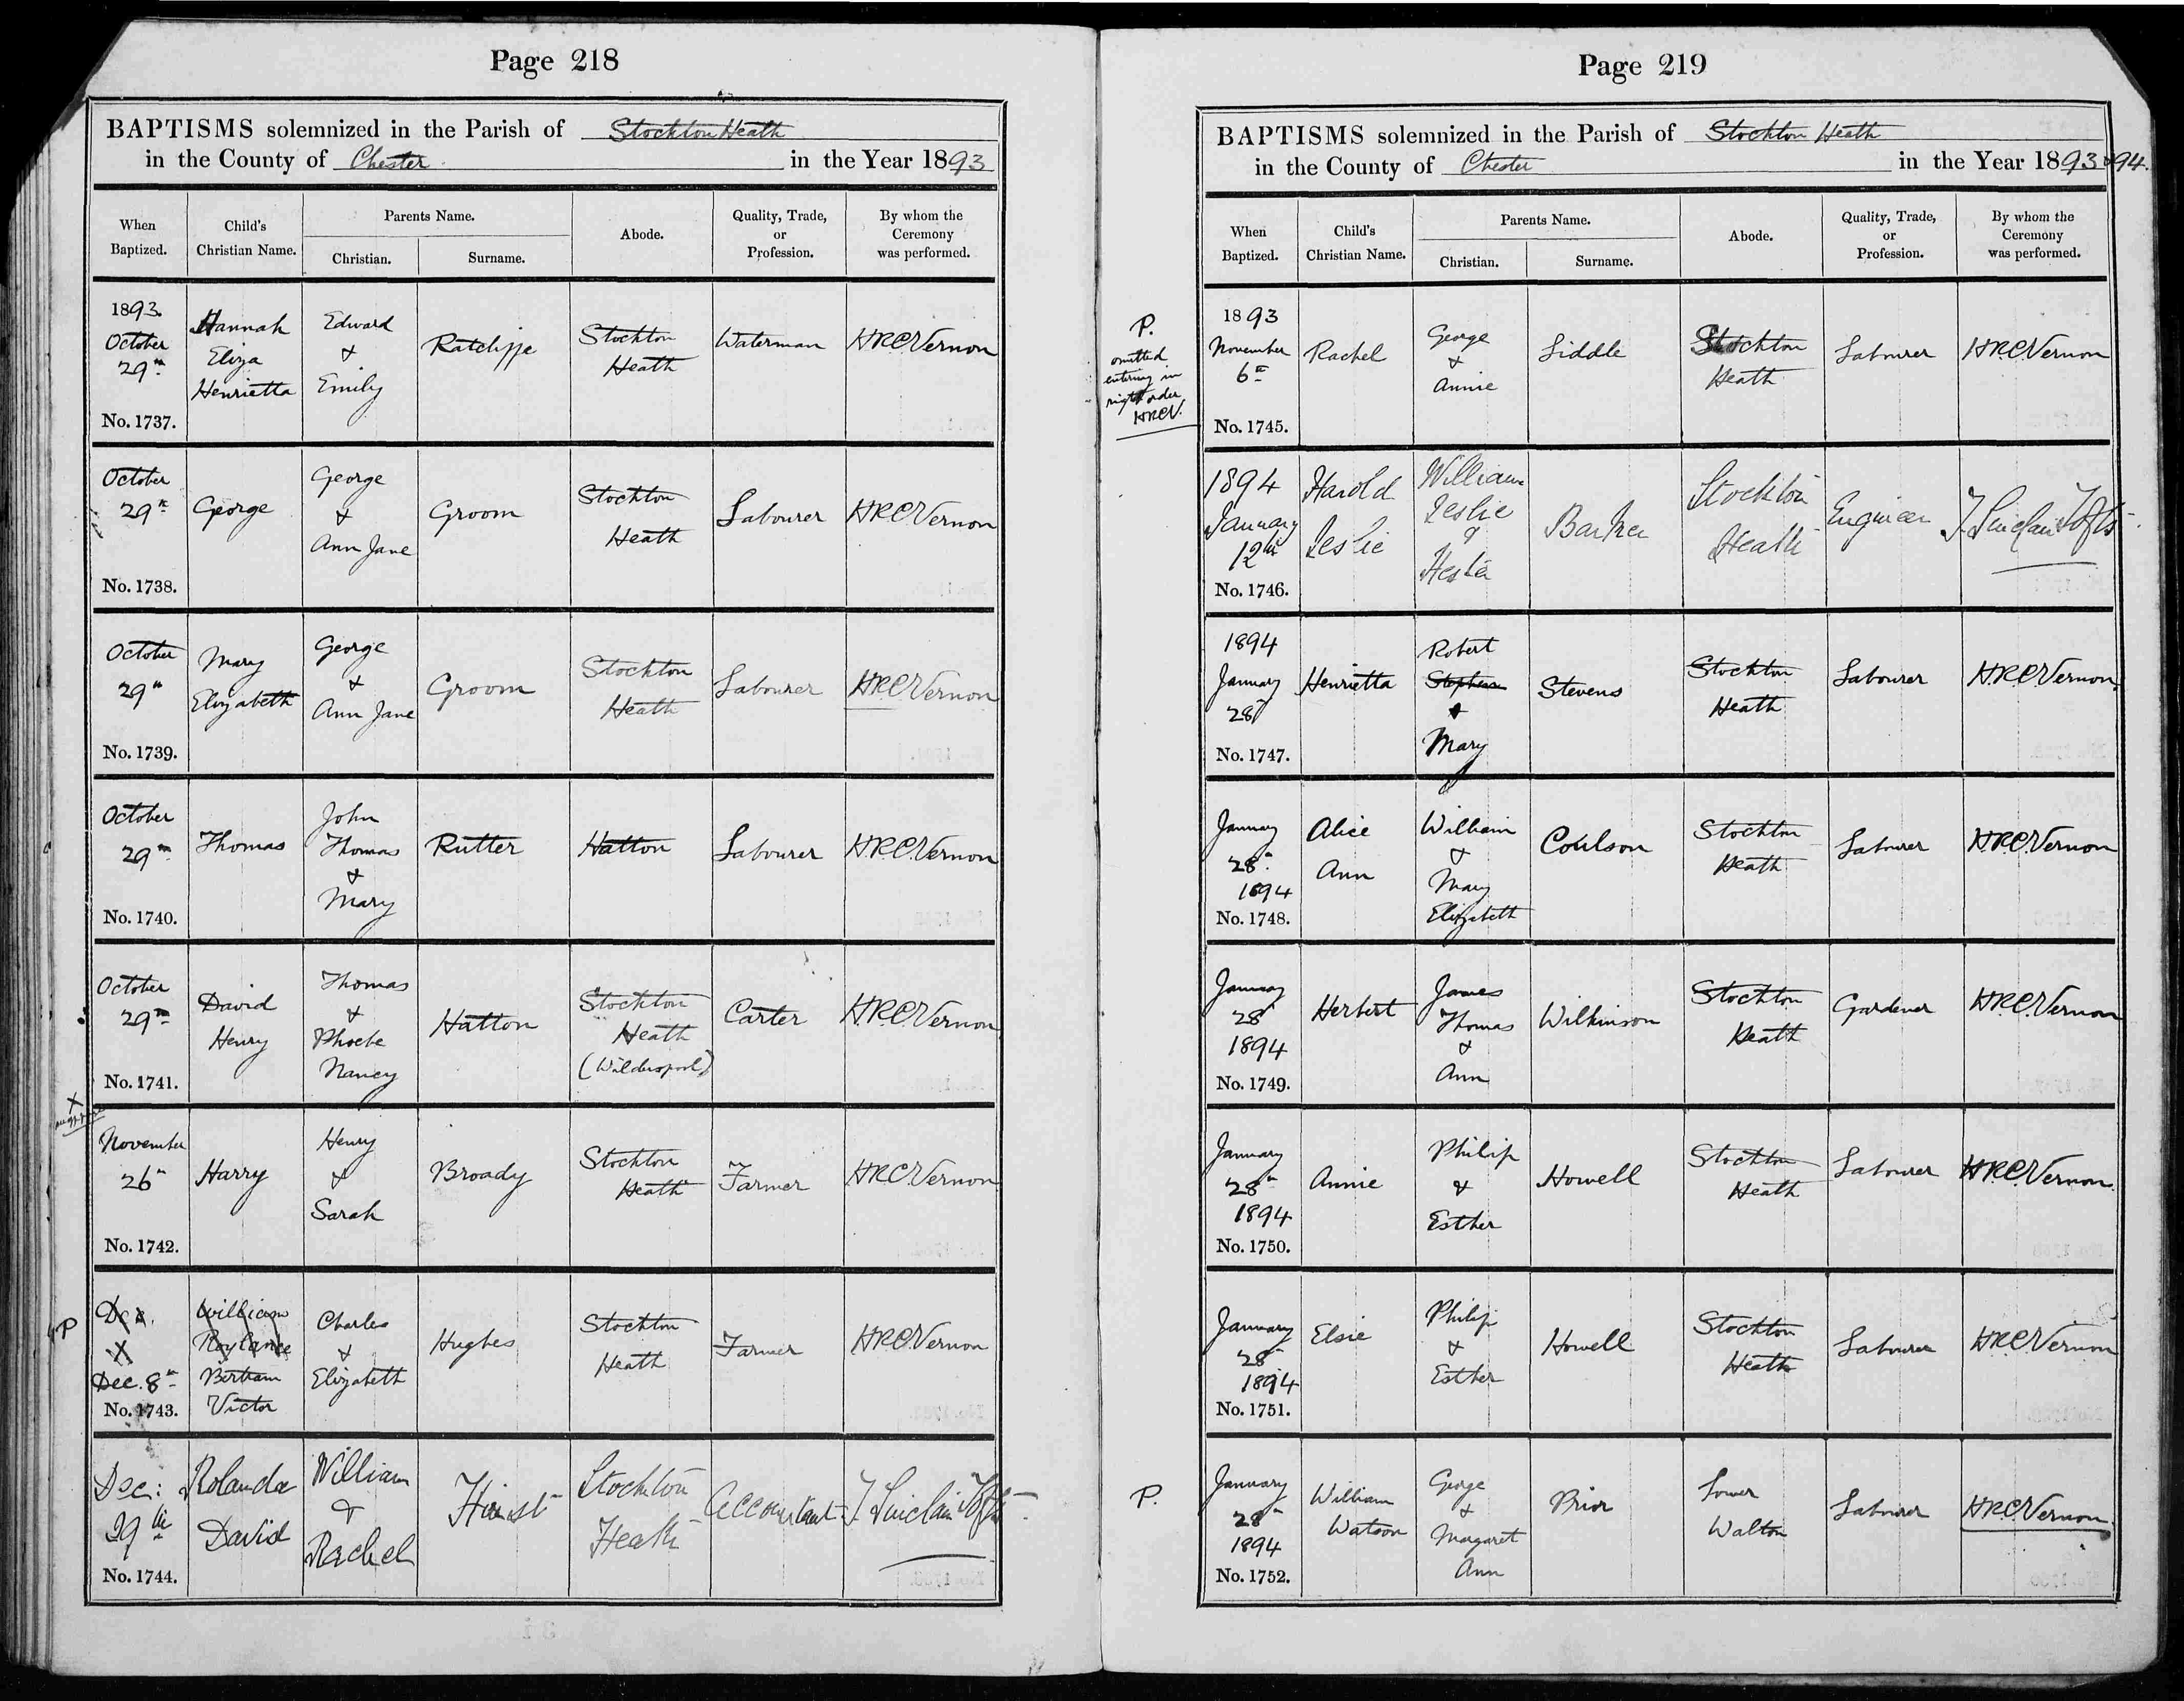 Page 218
BAPTISMS solemnized in the Parish of Stockton Heath
in the County of Chester in the Year 1893
When Baptized.
Child's Christian Name.
Parents Name.
Christian.
Surname.
Abode.
Quality, Trade, or Profession.
By whom the Ceremony was performed.
1893.
October
29th
No. 1737.
Hannah
Eliza
Henrietta
Edward
&
Emily
Ratcliffe
Stockton
Heath
Waterman
HRCVernon
October
29th
No. 1738.
George
George
&
Ann Jane
Groom
Stockton
Heath
Labourer
HRCVernon
October
29th
No. 1739.
Mary
Elizabeth
George
&
Ann Jane
Groom
Stockton
Heath
Labourer
HRCVernon
October
29th
No. 1740.
Thomas
John
Thomas
&
Mary
Rutter
Hatton
Labourer
HRCVernon
October
29th
No. 1741.
David
Henry
Thomas
&
Phoebe
Nancy
Hatton
Stockton
Heath
(Wilderspool)
Carter
HRCVernon
X
November
26th
No. 1742.
Harry
Henry
&
Sarah
Broady
Stockton
Heath
Farmer
HRCVernon
P
Dec.
Dec. 8th
No. 1743.
William
Roylance
Bertram
Victor
Charles
&
Elizabeth
Hughes
Stockton
Heath
Farmer
HRCVernon
Dec:
29th
No. 1744.
David
William
&
Rachel
Hirst
Stockton
Heath
Accountant
J. Sinclair Tofts
Page 219
BAPTISMS solemnized in the Parish of Stockton Heath
in the County of Chester in the Year 1893 & 94.
When Baptized.
Child's Christian Name.
Parents Name.
Christian.
Surname.
Abode.
Quality, Trade, or Profession.
By whom the Ceremony was performed.
P.
omitted
entering in
right order
HRCV.
1893
November
6th
No. 1745.
Rachel
George
&
Annie
Liddle
Stockton
Heath
Labourer
HRCVernon
1894
January
12th
No. 1746.
Harold
Leslie
William
Leslie
&
Hester
Barker
Stockton
Heath
Engineer
J. Sinclair Tofts
1894
January
28
No. 1747.
Henrietta
Robert
Stephen
&
Mary
Stevens
Stockton
Heath
Labourer
HRCVernon
January
28th
1894
No. 1748.
Alice
Ann
William
&
Mary
Elizabeth
Coulson
Stockton
Heath
Labourer
HRCVernon
January
28
1894
No. 1749.
Herbert
James
Thomas
&
Ann
Wilkinson
Stockton
Heath
Gardener
HRCVernon
January
28th
1894
No. 1750.
Annie
Philip
&
Esther
Howell
Stockton
Heath
Labourer
HRCVernon
January
28
1894
No. 1751.
Elsie
Philip
&
Esther
Howell
Stockton
Heath
Labourer
HRCVernon
P.
January
28th
1894
No. 1752.
William
Watson
George
&
Margaret
Ann
Prior
Lower
Walton
Labourer
HRCVernon